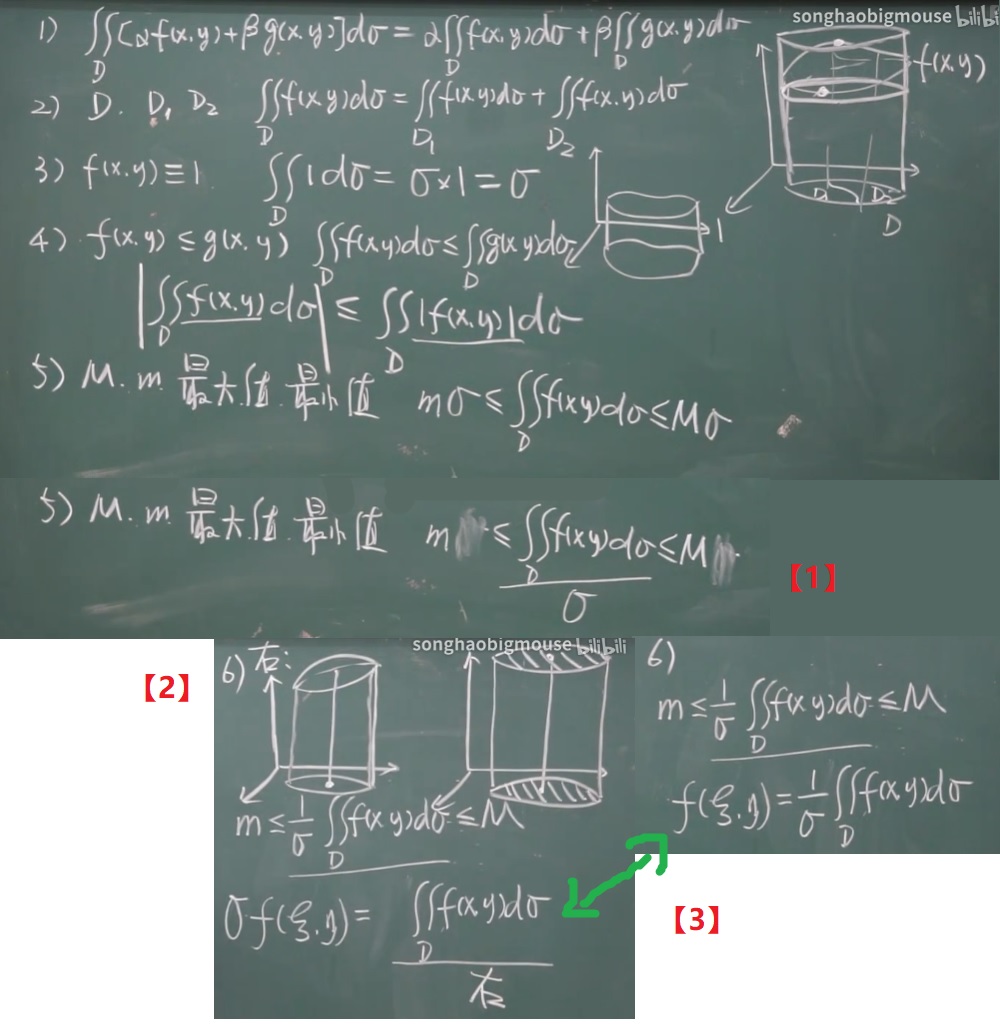 songhaobigmouse bilibili
1) ∬_D [αf(x,y)+βg(x,y)]dσ = α∬_D f(x,y)dσ + β∬_D g(x,y)dσ
f(x,y)
2) D. D₁ D₂ ∬_D f(x,y)dσ = ∬_D₁ f(x,y)dσ + ∬_D₂ f(x,y)dσ
3) f(x,y)≡1. ∬_D 1dσ = σ×1 = σ
D₁ D₂
D
1
4) f(x,y) ≤ g(x,y) ∬_D f(x,y)dσ ≤ ∬_D g(x,y)dσ
|∬_D f(x,y)dσ| ≤ ∬_D |f(x,y)|dσ
5) M. m 最大值 最小值 mσ ≤ ∬_D f(x,y)dσ ≤ Mσ
5) M. m 最大值 最小值 m ≤ ∬_D f(x,y)dσ / σ ≤ M
【1】
【2】
songhaobigmouse bilibili
6) 右:
m ≤ 1/σ ∬_D f(x,y)dσ ≤ M
σf(ξ,η) = ∬_D f(x,y)dσ
右
6)
m ≤ 1/σ ∬_D f(x,y)dσ ≤ M
f(ξ,η) = 1/σ ∬_D f(x,y)dσ
【3】